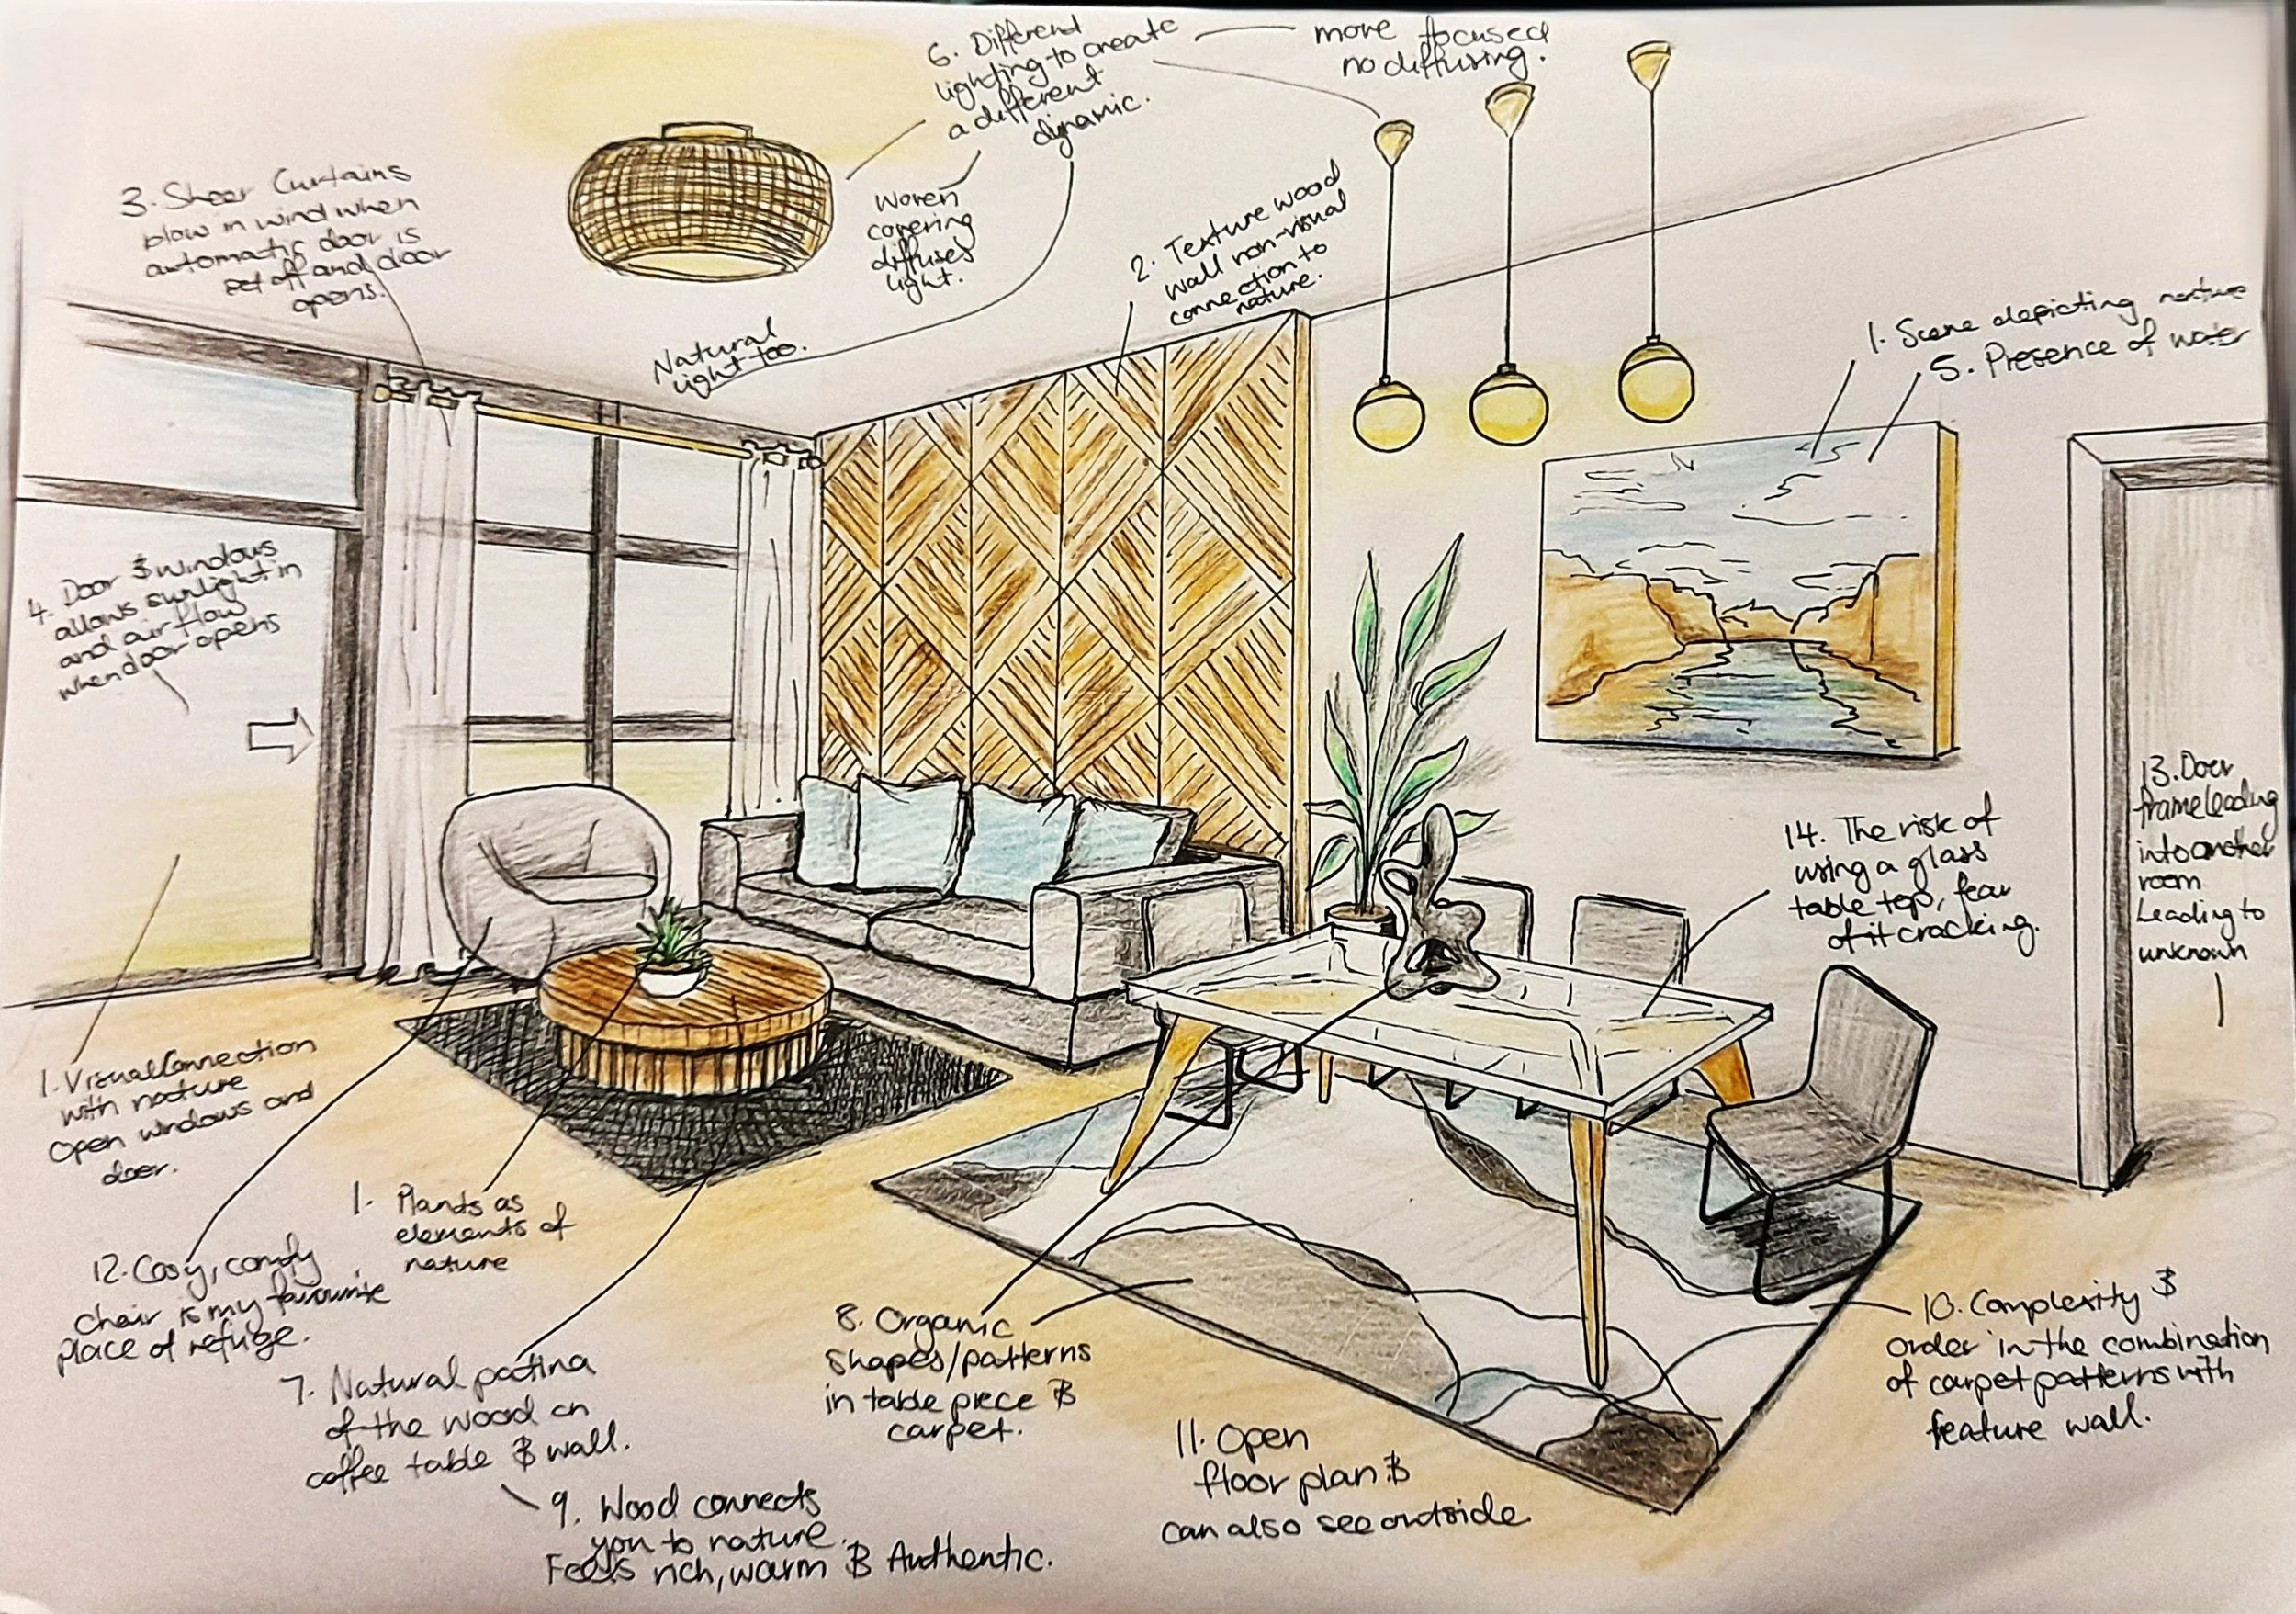 6. Different
lighting to create
a different
dynamic.
more focused
no diffusing.
3. Sheer Curtains
blow in wind when
automatic door is
set off and door
opens.
Woven
covering
diffuses
light.
2. Texture wood
wall non-visual
connection to
nature.
Natural
light too.
1. Scene depicting nature
5. Presence of water
4. Door & windows
allows sunlight in
and airflow
when door opens
13. Door
frame leading
into another
room
Leading to
unknown
14. The risk of
using a glass
table top, fear
of it cracking.
1. Visual Connection
with nature
Open windows and
door.
1. Plants as
elements of
nature
12. Cosy, comfy
chair is my favourite
place of refuge.
7. Natural patina
of the wood on
coffee table & wall.
8. Organic
shapes/patterns
in table piece &
carpet.
10. Complexity &
order in the combination
of carpet patterns with
feature wall.
11. Open
floor plan &
can also see outside
9. Wood connects
you to nature.
Feels rich, warm & Authentic.